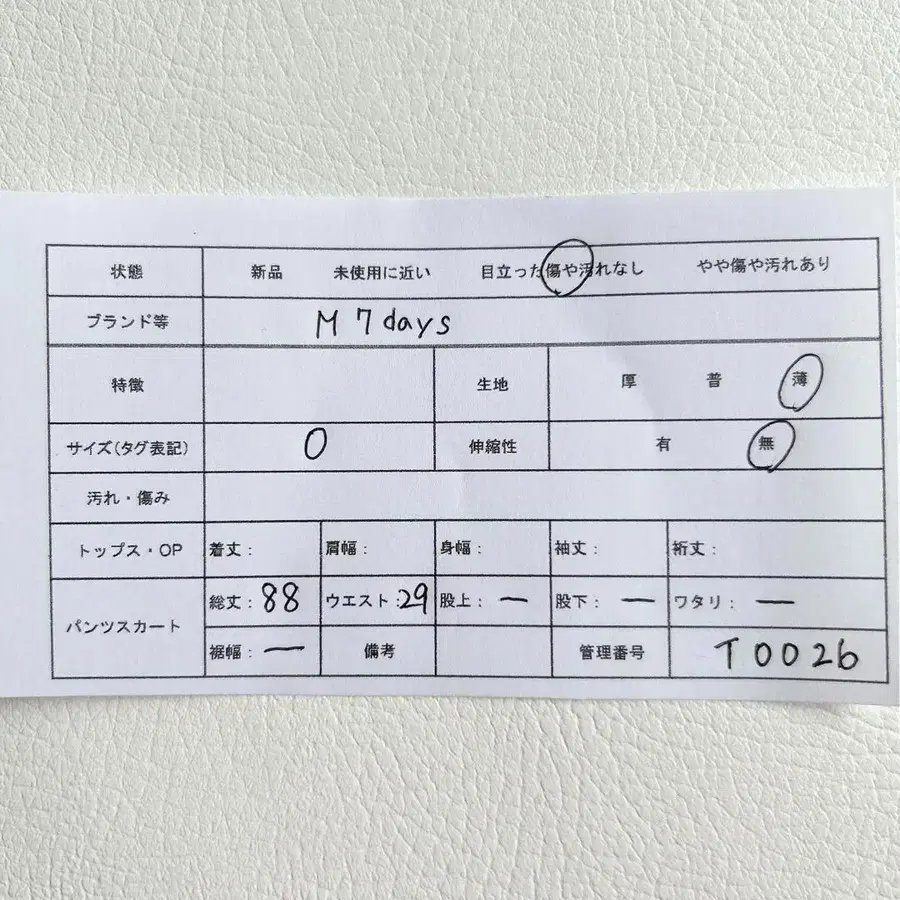 状態 新品 未使用に近い 目立った傷や汚れなし やや傷や汚れあり
ブランド等 M7days
特徴 生地 厚 普 薄
サイズ(タグ表記) 0 伸縮性 有 無
汚れ・傷み
トップス・OP 着丈: 肩幅: 身幅: 袖丈: 裄丈:
パンツスカート
総丈:88 ウエスト:29 股上:ー 股下:ー ワタリ:ー
裾幅:ー 備考 管理番号 T0026